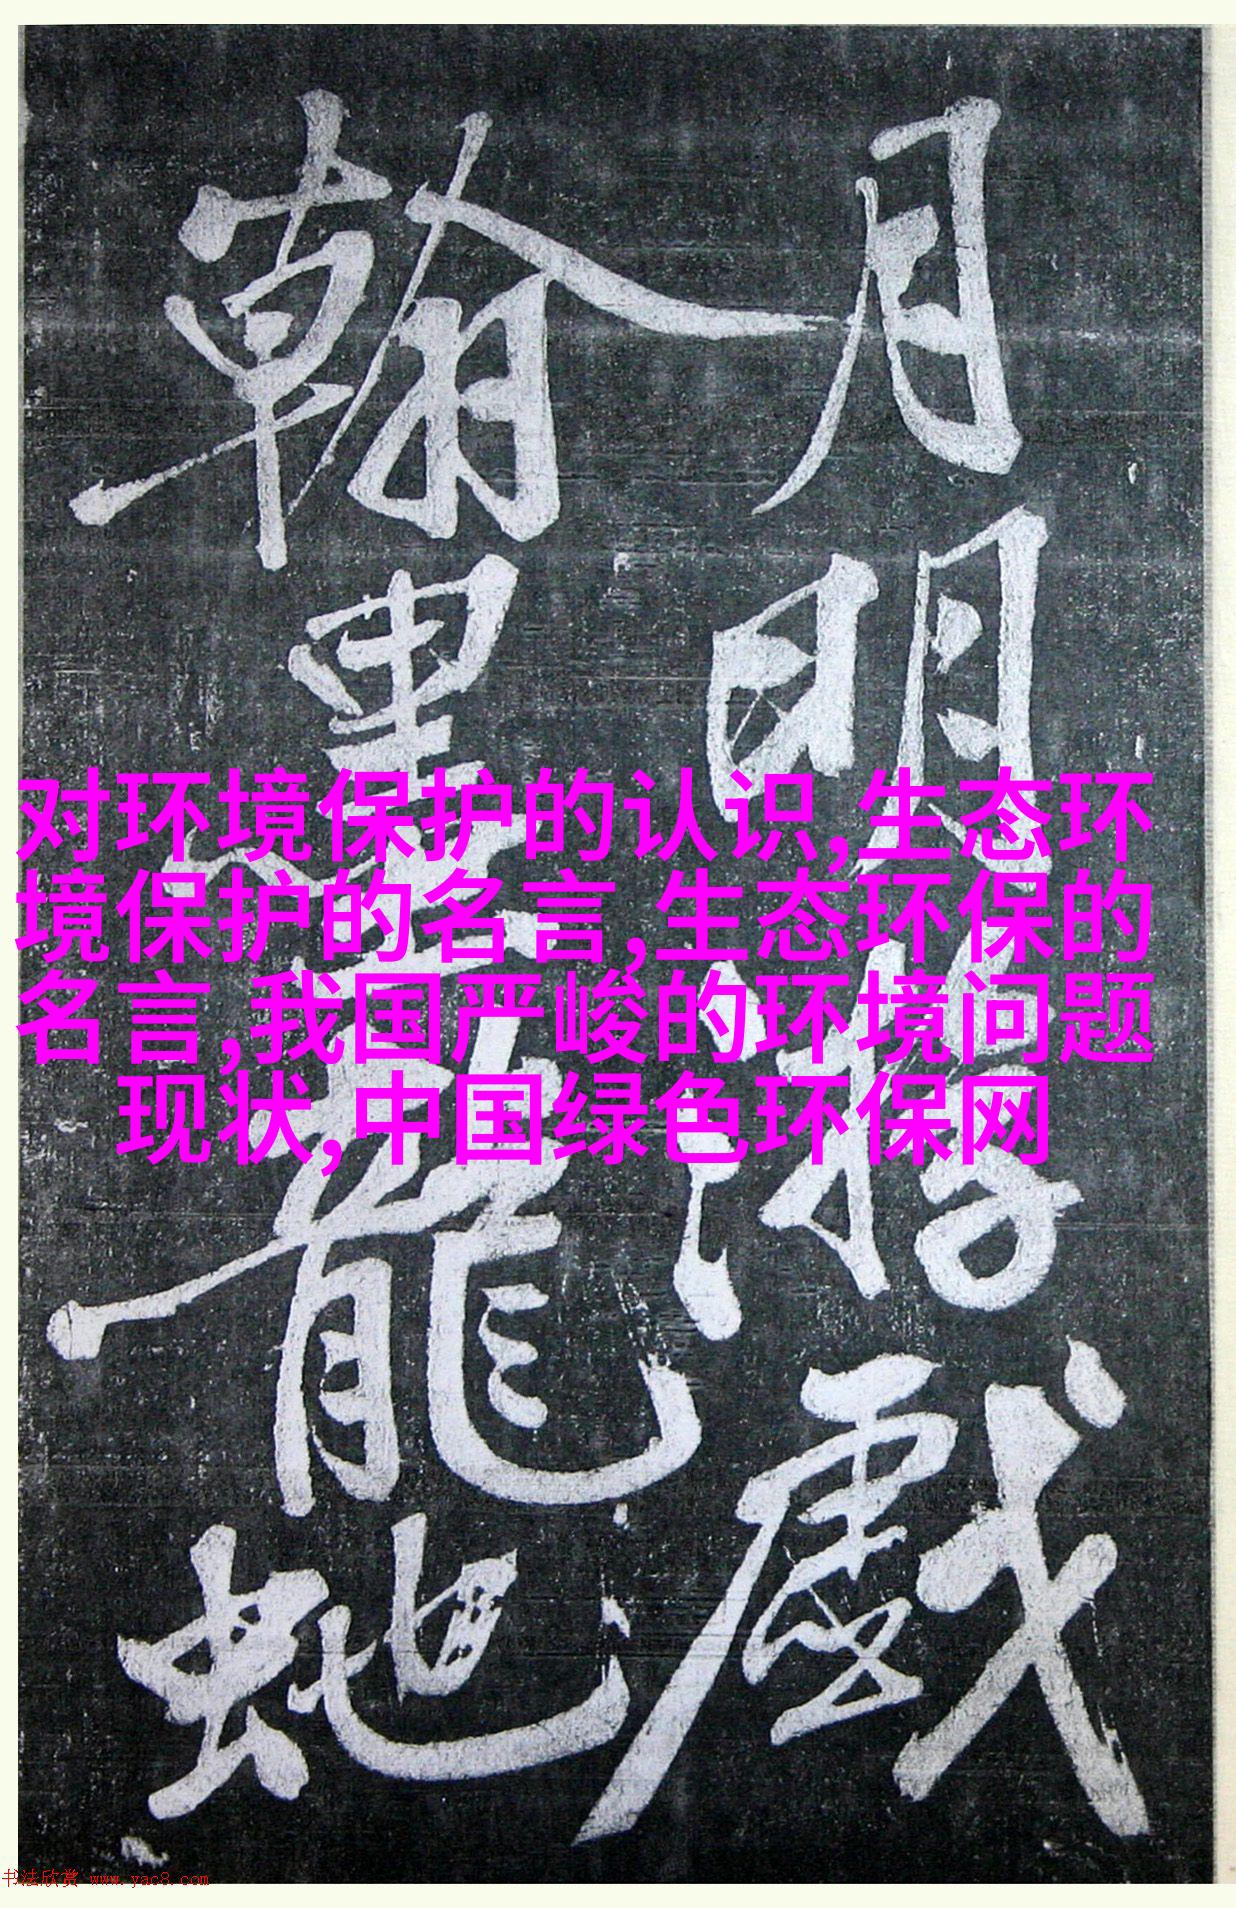 月明游戏
翰墨龍蛇
对环境保护的认识,生态环
境保护的名言,生态环保的
名言,我国严峻的环境问题
现状,中国绿色环保网
书法欣赏 www.yac8.com